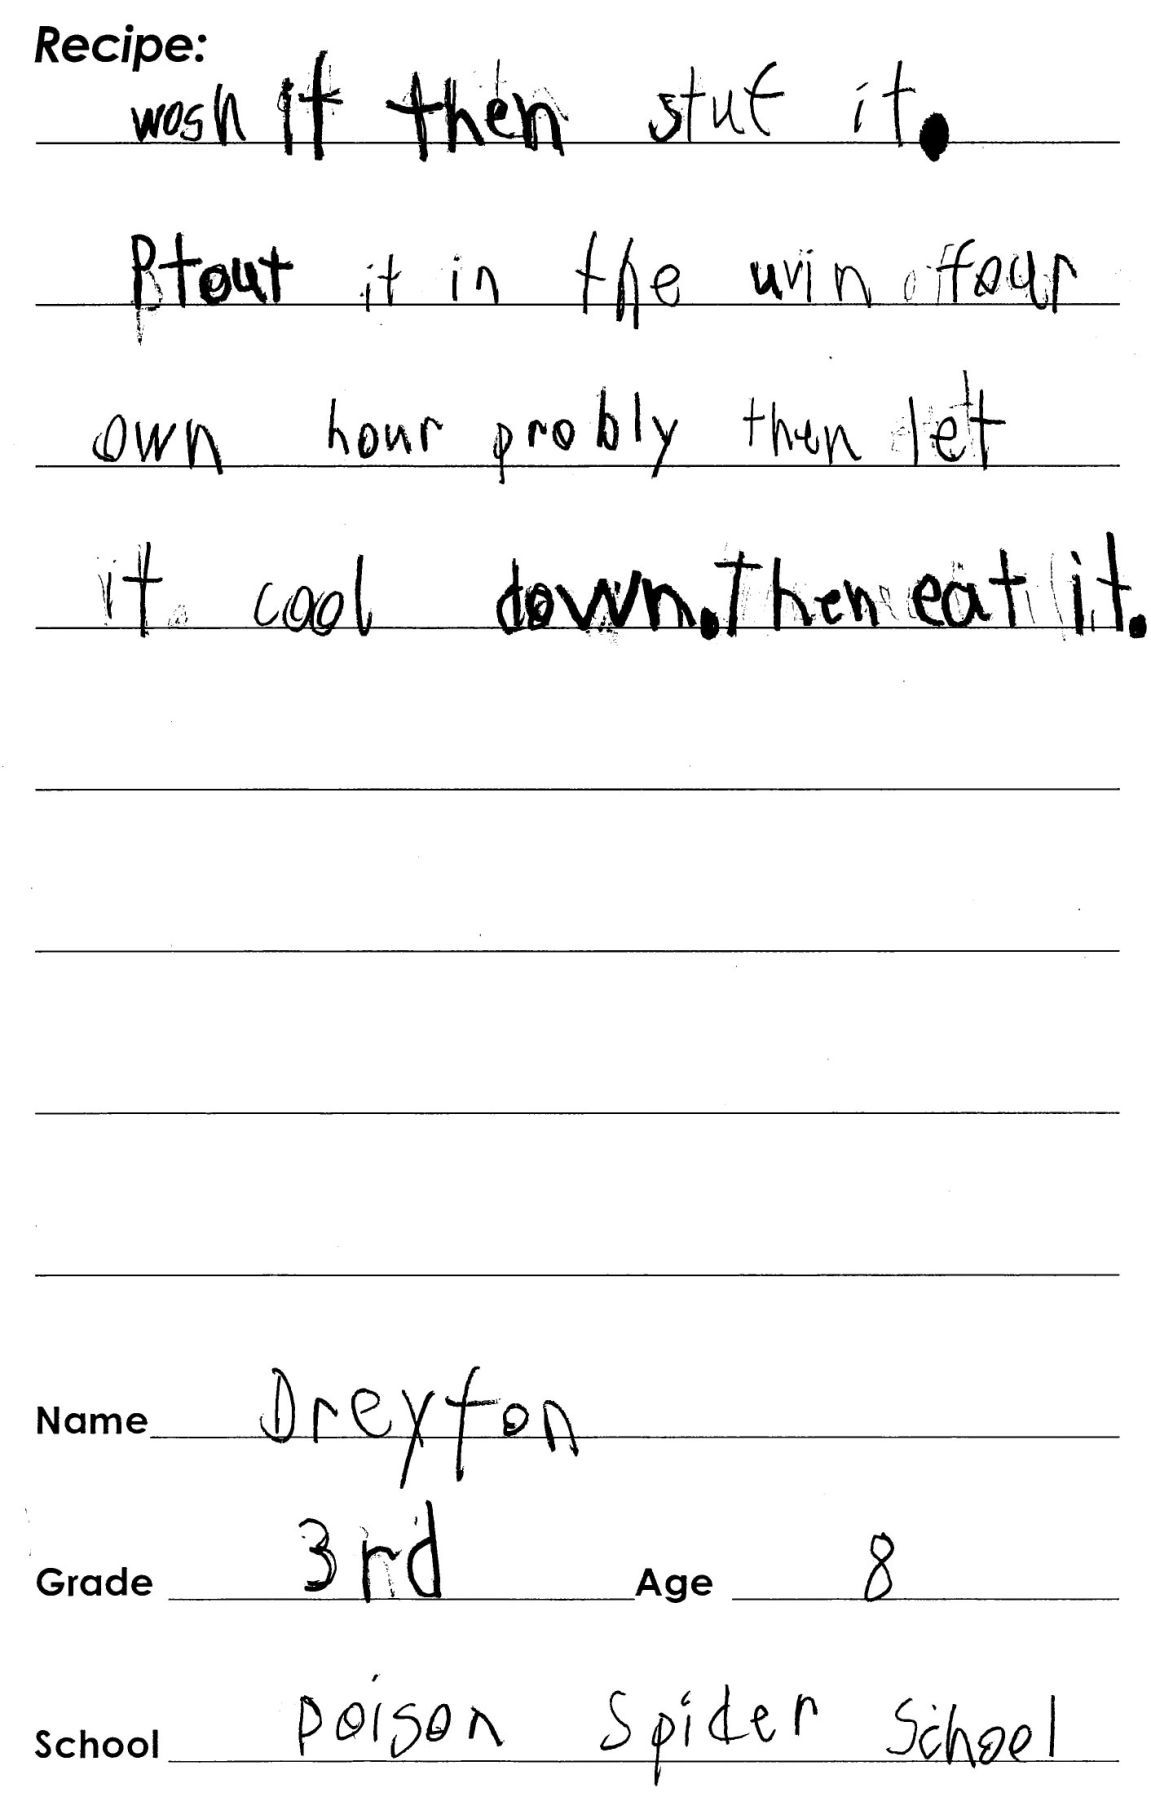 Recipe:
wosh it then stuf it.
Ptout it in the uvin four
own hour probly then let
it cool down. Then eat it.
Name Dreyton
Grade 3rd Age 8
School poison spider School